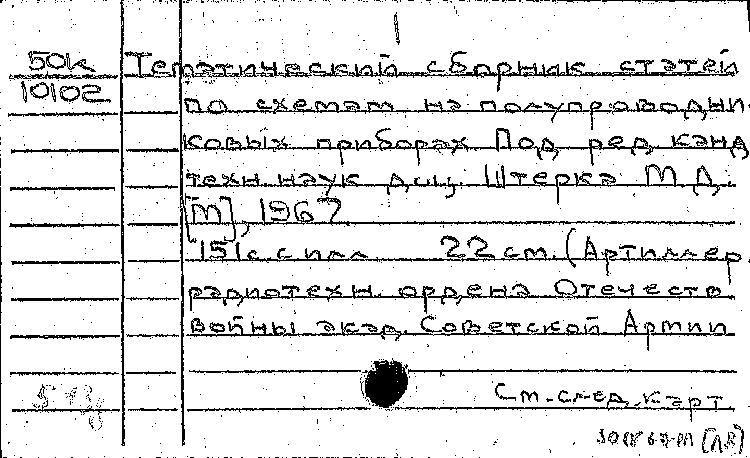 1
50к Тематический сборник статей
10102 по схемам на полупроводни-
ковых приборах Под ред. канд
техн. наук доц. Штерка М.Д.
[М], 1967
151с. с илл 22 см. (Артиллер.
радиотехн. ордена Отечеств
войны акад. Советской Армии
См. след. карт